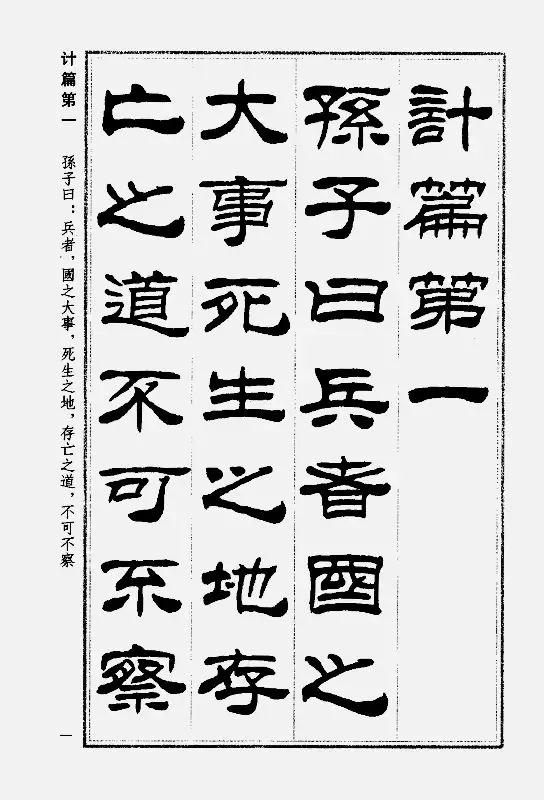 計篇第一
孫子曰兵者國之
大事死生之地存
亡之道不可不察
计篇第一
孫子曰：兵者，國之大事，死生之地，存亡之道，不可不察
一